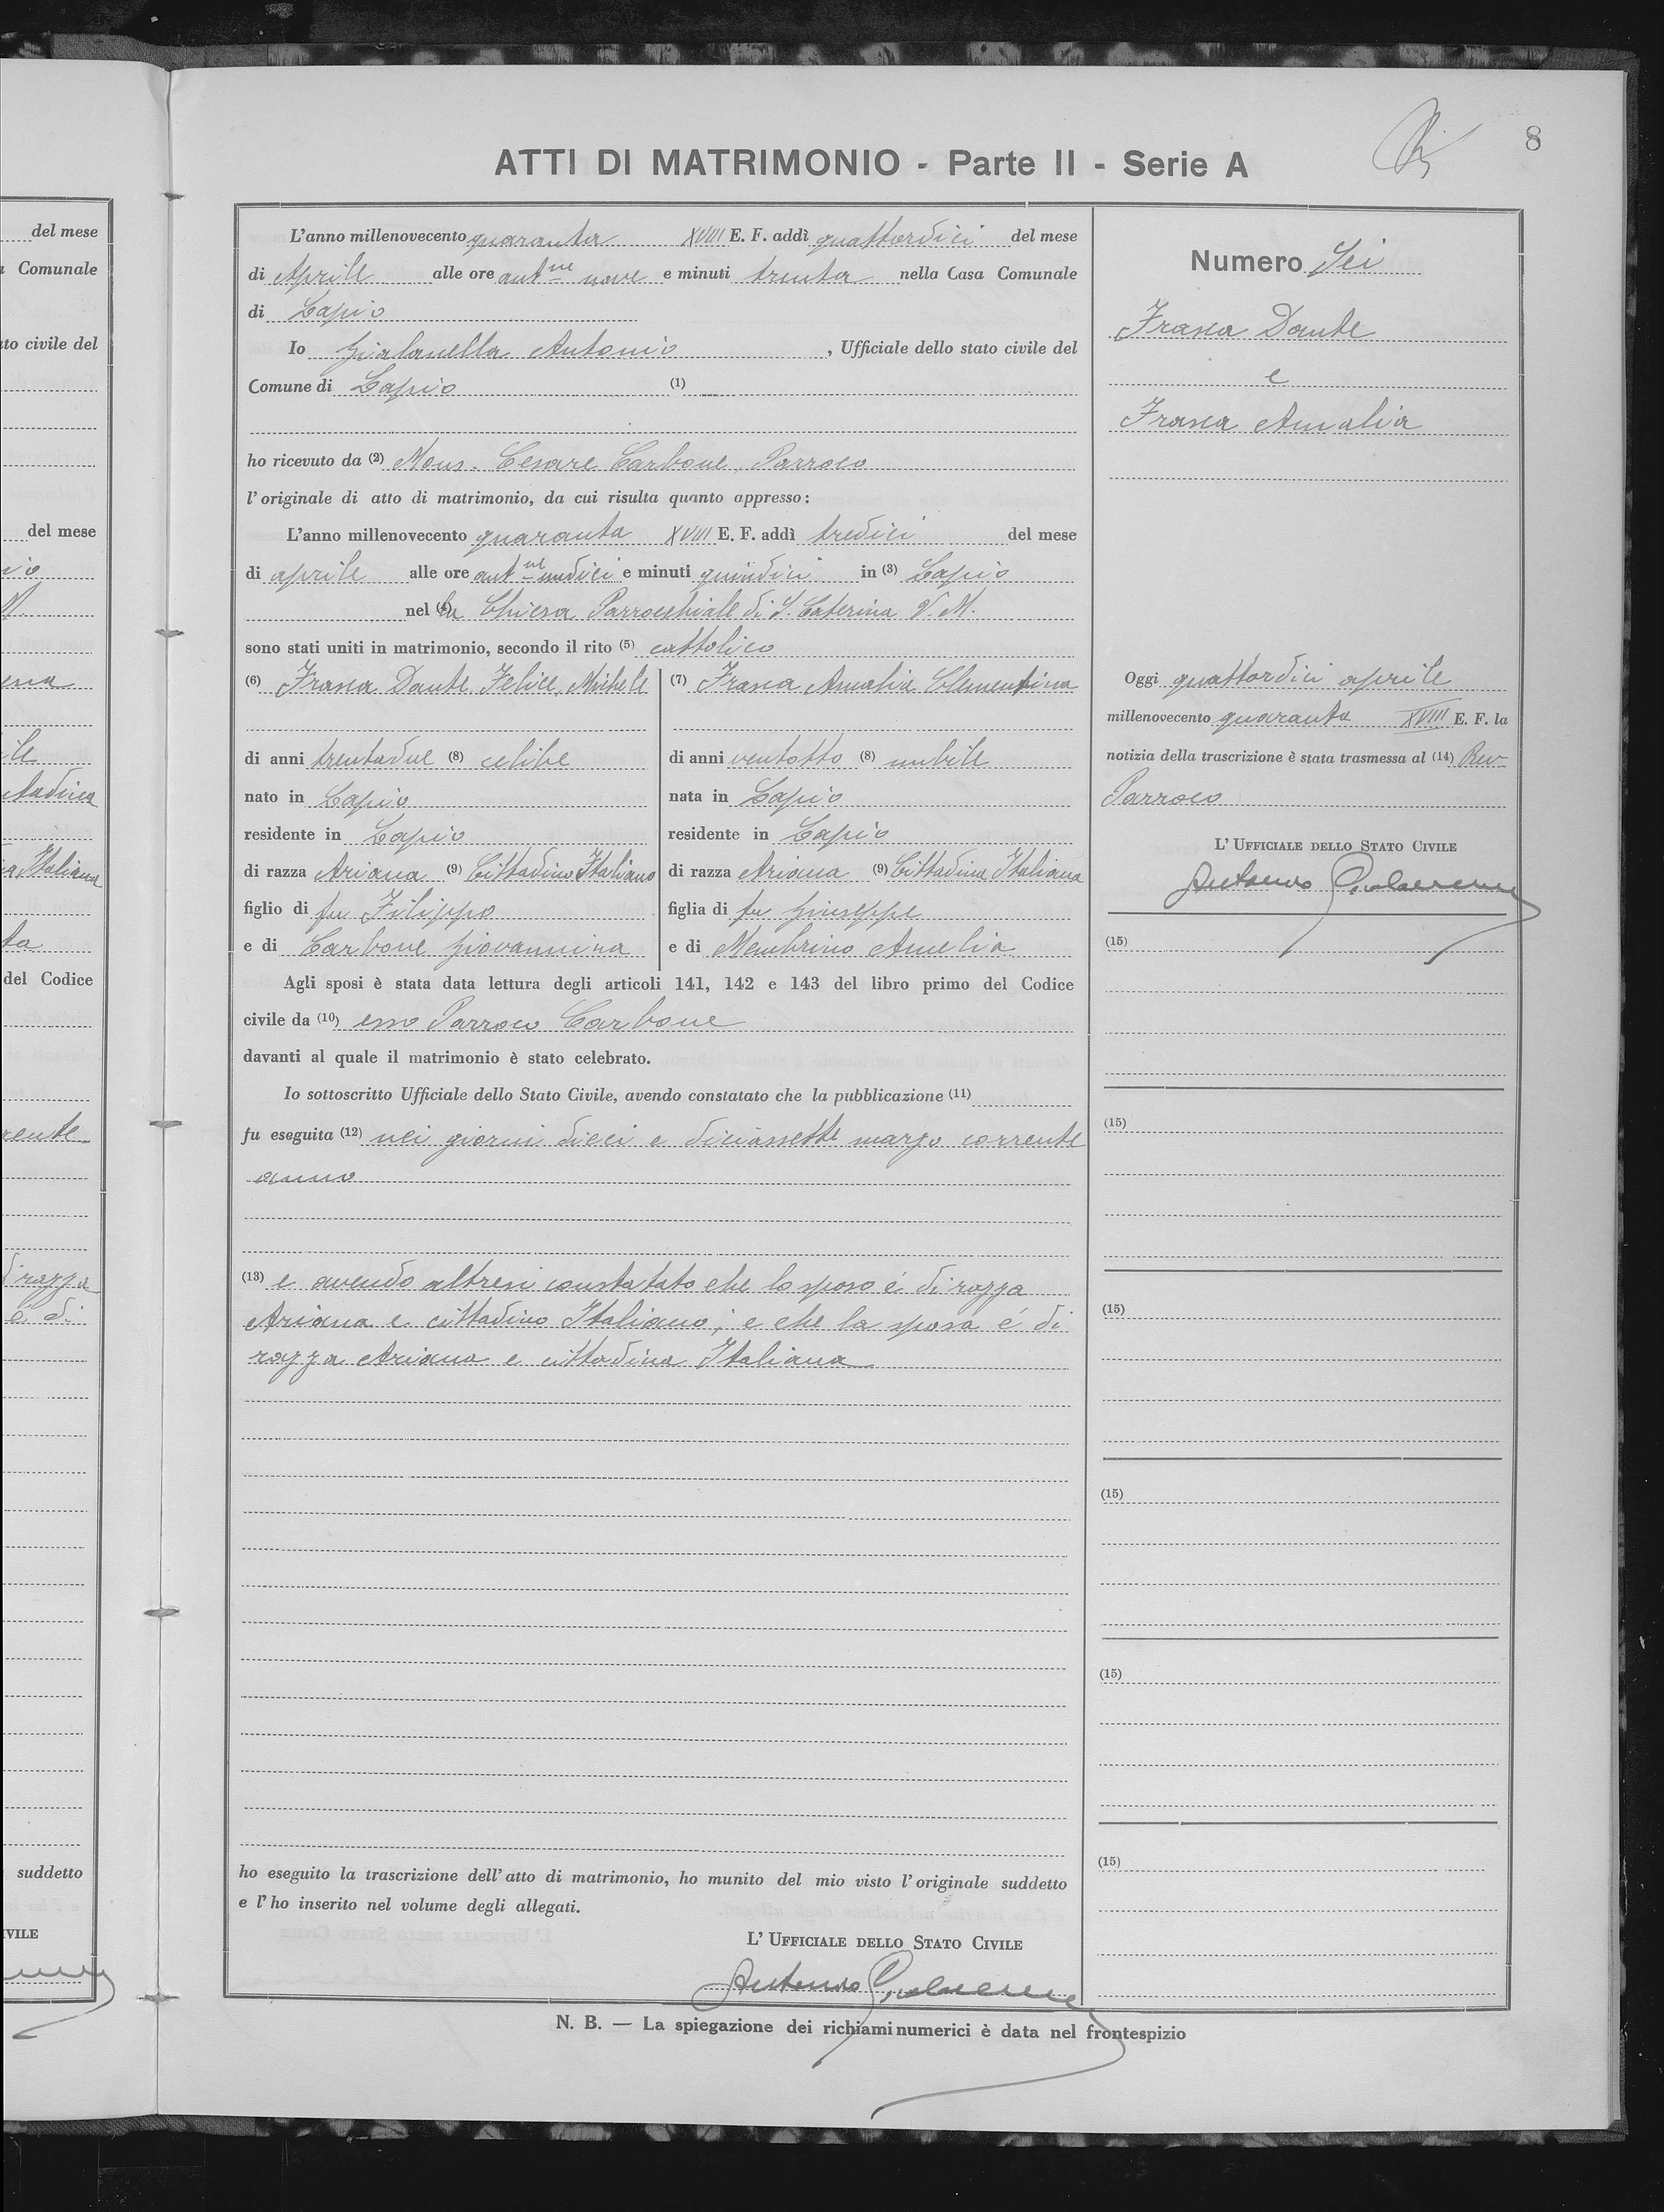 8
ATTI DI MATRIMONIO - Parte II - Serie A
L'anno millenovecento quaranta XVIII E. F. addì quattordici del mese
di Aprile alle ore ant.ne nove e minuti trenta nella Casa Comunale
di Lapio
Io Gialanella Antonio, Ufficiale dello stato civile del
Comune di Lapio (1)
ho ricevuto da (2) Mons. Cesare Carbone, Parroco
l'originale di atto di matrimonio, da cui risulta quanto appresso:
L'anno millenovecento quaranta XVIII E. F. addì tredici del mese
di aprile alle ore ant.ne undici e minuti quindici in (3) Lapio
nel (4) la Chiesa Parrocchiale di S. Caterina V. M.
sono stati uniti in matrimonio, secondo il rito (5) cattolico
(6) Frasca Dante Felice, Michele
di anni trentadue (8) celibe
nato in Lapio
residente in Lapio
di razza Ariana (9) Cittadino Italiano
figlio di fu Filippo
e di Carbone Giovannina
(7) Frasca Amalia Clementina
di anni ventotto (8) nubile
nata in Lapio
residente in Lapio
di razza Ariana (9) Cittadina Italiana
figlia di fu Giuseppe
e di Membrino Amelia
Agli sposi è stata data lettura degli articoli 141, 142 e 143 del libro primo del Codice
civile da (10) esso Parroco Carbone
davanti al quale il matrimonio è stato celebrato.
Io sottoscritto Ufficiale dello Stato Civile, avendo constatato che la pubblicazione (11)
fu eseguita (12) nei giorni dieci e diciassette marzo corrente
anno
(13) e avendo altresi constatato che lo sposo é di razza
Ariana e cittadino Italiano, e che la sposa é di
razza Ariana e cittadina Italiana
ho eseguito la trascrizione dell'atto di matrimonio, ho munito del mio visto l'originale suddetto
e l'ho inserito nel volume degli allegati.
L'UFFICIALE DELLO STATO CIVILE
Antonio Gialanella
N. B. — La spiegazione dei richiami numerici è data nel frontespizio
Numero Sei
Frasca Dante
e
Frasca Amalia
Oggi quattordici aprile
millenovecento quaranta XVIII E. F. la
notizia della trascrizione è stata trasmessa al (14) Rev.
Parroco
L'UFFICIALE DELLO STATO CIVILE
Antonio Gialanella
(15)
(15)
(15)
(15)
(15)
(15)
del mese
Comunale
to civile del
del mese
Italiana
del Codice
suddetto